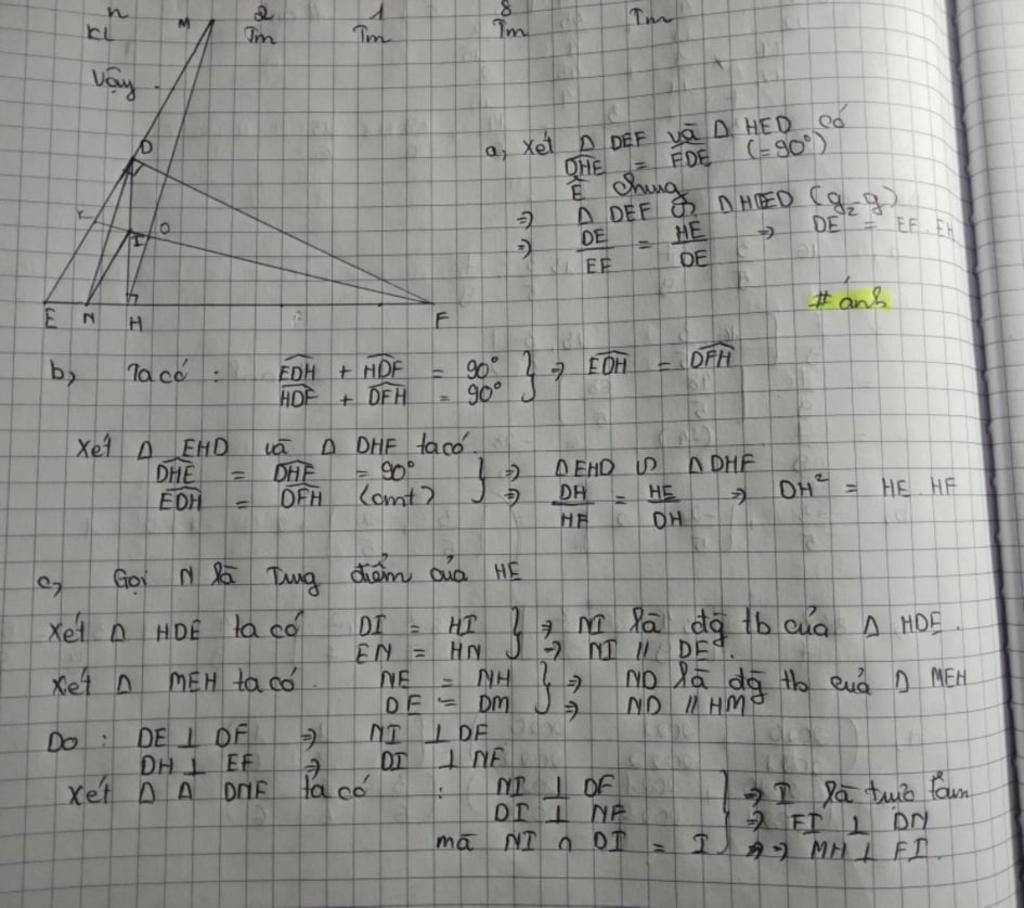 n M 2 1 8
KL Tm Tm Tm Tm
Vậy
D
K O
I
E N H F
a, Xét Δ DEF và Δ HED có
DHE = FDE (=90°)
Ê chung
⇒ Δ DEF ∽ Δ HED (g-g)
⇒ DE/EF = HE/DE ⇒ DE² = EF.EH
# ánh
b, Ta có : EDH + HDF = 90°
HDF + DFH = 90° } ⇒ EDH = DFH
Xét Δ EHD và Δ DHF ta có
DHE = DHF = 90° } ⇒ Δ EHD ∽ Δ DHF
EDH = DFH (cmt) ⇒ DH/HF = HE/DH ⇒ DH² = HE.HF
c, Gọi N là Tung điểm của HE
Xét Δ HDE ta có DI = HI } ⇒ NI là đg tb của Δ HDE.
EN = HN ⇒ NI // DE.
Xét Δ MEH ta có NE = NH } ⇒ ND là đg tb của Δ MEH
DE = DM ⇒ ND // HM
Do : DE ⊥ DF ⇒ NI ⊥ DF
DH ⊥ EF ⇒ DI ⊥ NF
Xét Δ Δ DNF ta có : NI ⊥ DF } ⇒ I là trực tâm
DI ⊥ NF ⇒ FI ⊥ DN
mà NI ∩ DI = I ⇒ ⇒ MH ⊥ FI.